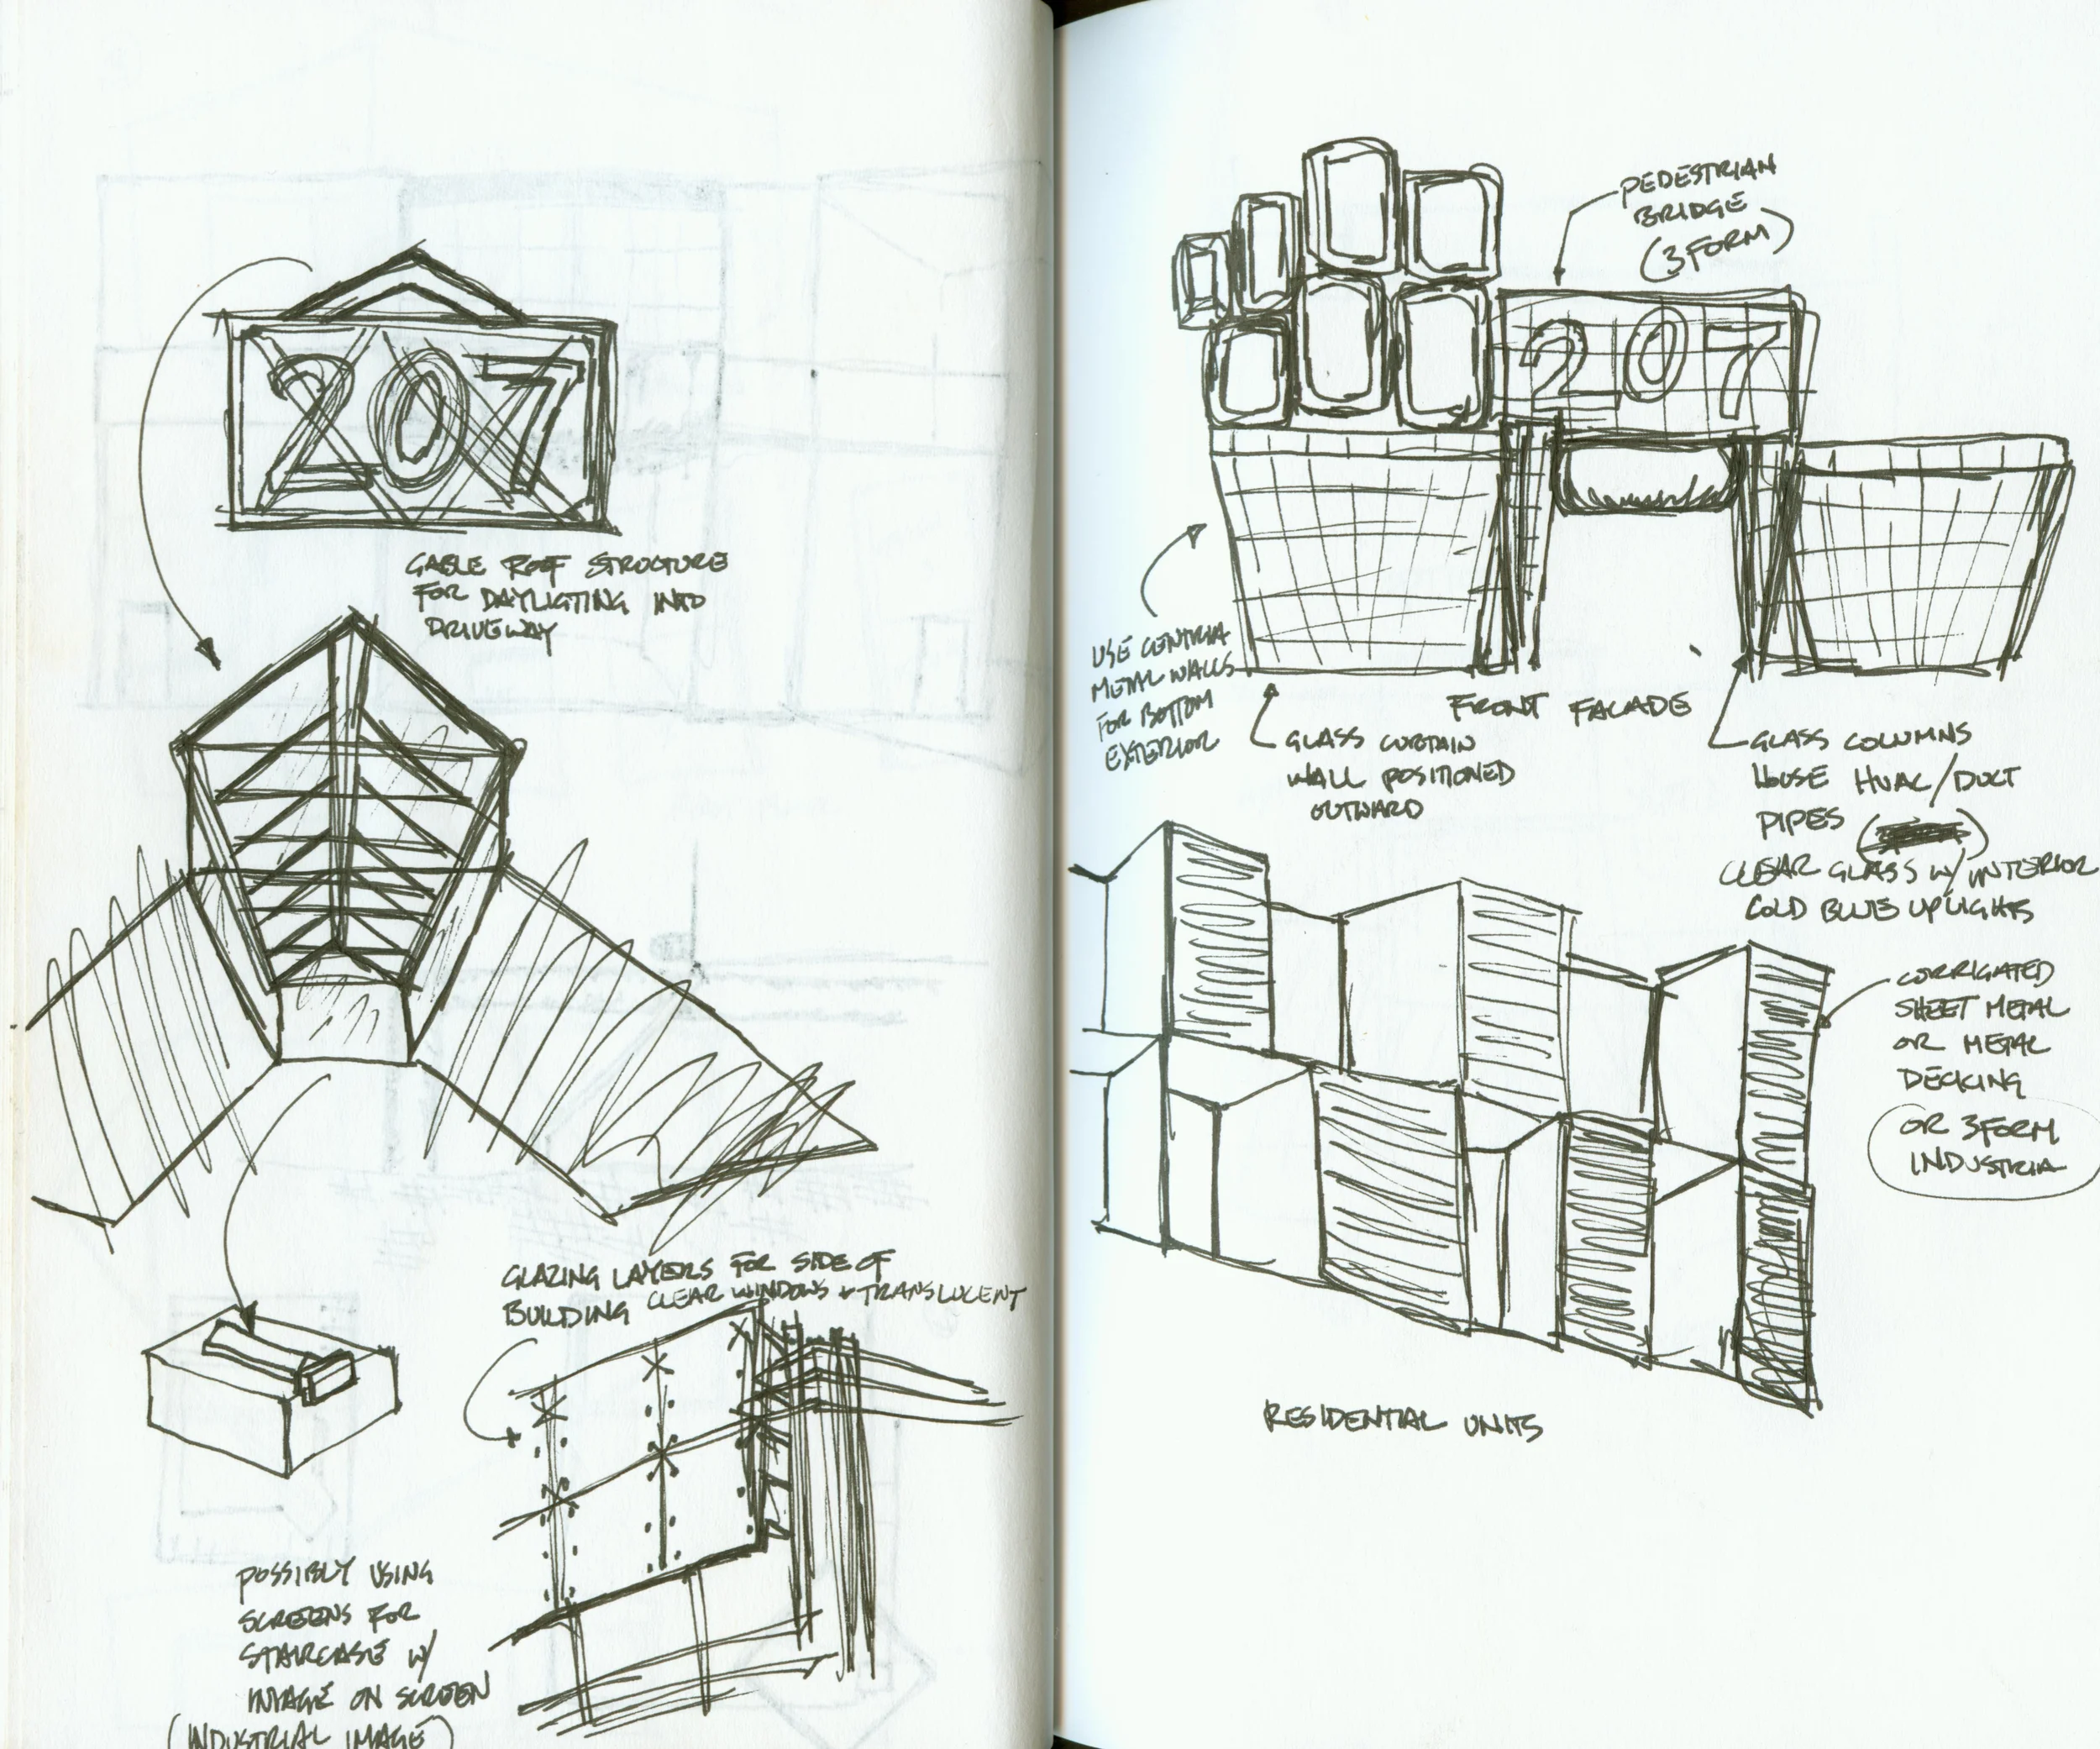 207
GABLE ROOF STRUCTURE
FOR DAYLIGTING INTO
DRIVEWAY
GLAZING LAYERS FOR SIDE OF
BUILDING CLEAR WINDOWS & TRANSLUCENT
POSSIBLY USING
SCREENS FOR
STAIRCASE W/
IMAGE ON SCREEN
(INDUSTRIAL IMAGE)
PEDESTRIAN
BRIDGE
(3FORM)
207
USE CENTRIA
METAL WALLS
FOR BOTTOM
EXTERIOR
FRONT FACADE
GLASS CURTAIN
WALL POSITIONED
OUTWARD
GLASS COLUMNS
HOUSE HVAC/DUCT
PIPES
CLEAR GLASS W/ INTERIOR
COLD BLUE UPLIGHTS
CORRIGATED
SHEET METAL
OR METAL
DECKING
OR 3FORM
INDUSTRIA
RESIDENTIAL UNITS